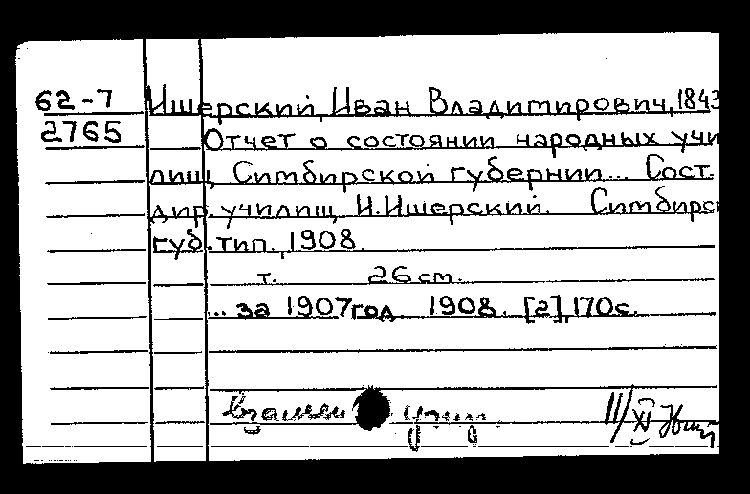 62-7 Ишерский, Иван Владимирович, 1843
2765 Отчет о состоянии народных учи
лищ Симбирской губернии... Сост.
дир. училищ И. Ишерский. Симбирс
губ. тип., 1908.
т. 26 см.
... за 1907 год. 1908. [2], 170 с.
Взамен
11/XI